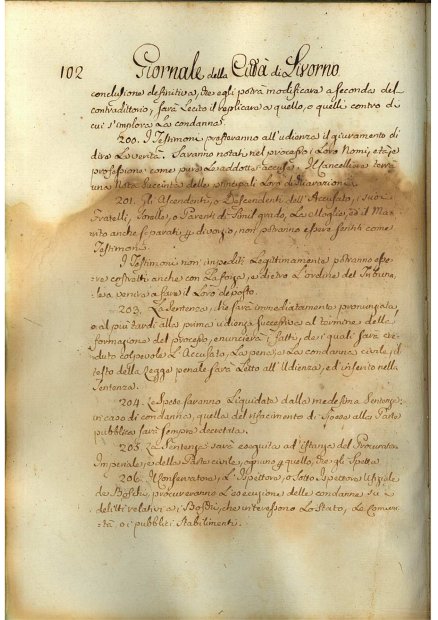 102 Giornale della Città di Livorno
conclusione definitiva, che egli potrà modificare a seconda del
contradittorio, sarà Lecito il replicare a quello, o quelli contro di
cui s'implora La condanna.
200. I Testimonj presteranno all'udienza il giuramento di
dire La verità. Saranno notati nel processo i Loro Nomi, età, e
professione come pure Le addotte accuse. Il Cancelliere terrà
una Nota succinta delle principali Loro dichiarazioni
201. Gli Ascendenti, o Descendenti dell'Accusato, i suoi
Fratelli, Sorelle, o Parenti di simil grado, La Moglie, ed il Ma-
rito anche separati per divorzio, non potranno essere sentiti come
Testimonj.
I Testimonj non impediti Legittimamente potranno esse-
re costretti anche con La forza, e dietro L'ordine del Tribuna-
le a venire a fare il Loro deposto.
203. La Sentenza, che sarà immediatamente pronunziata
o al più tardi alla prima udienza successiva al termine della
formazione del processo, enuncierà i fatti, dei quali sarà cre-
duto colpevole L'Accusato, La pena, e La condanna civile, il
testo della Legge penale sarà Letto all'Udienza, ed inserito nella
Sentenza.
204. Le Spese saranno Liquidate dalla medesima Sentenza;
in caso di condanna, quella del rifacimento di Spese alla Parte
pubblica sarà sempre decretata.
205. La Sentenza sarà eseguita ad istanza del Procurator
Imperiale, e della Parte civile, ognuno per quello, che gli Spetta
206. Il Conservatore, L'Ispettore, o Sotto Ispettore
de Boschi, procureranno L'esecuzione delle condanne su i
delitti relativi a i Boschi, che interessono Lo Stato, Le Comuni-
tà, o i pubblici Stabilimenti.